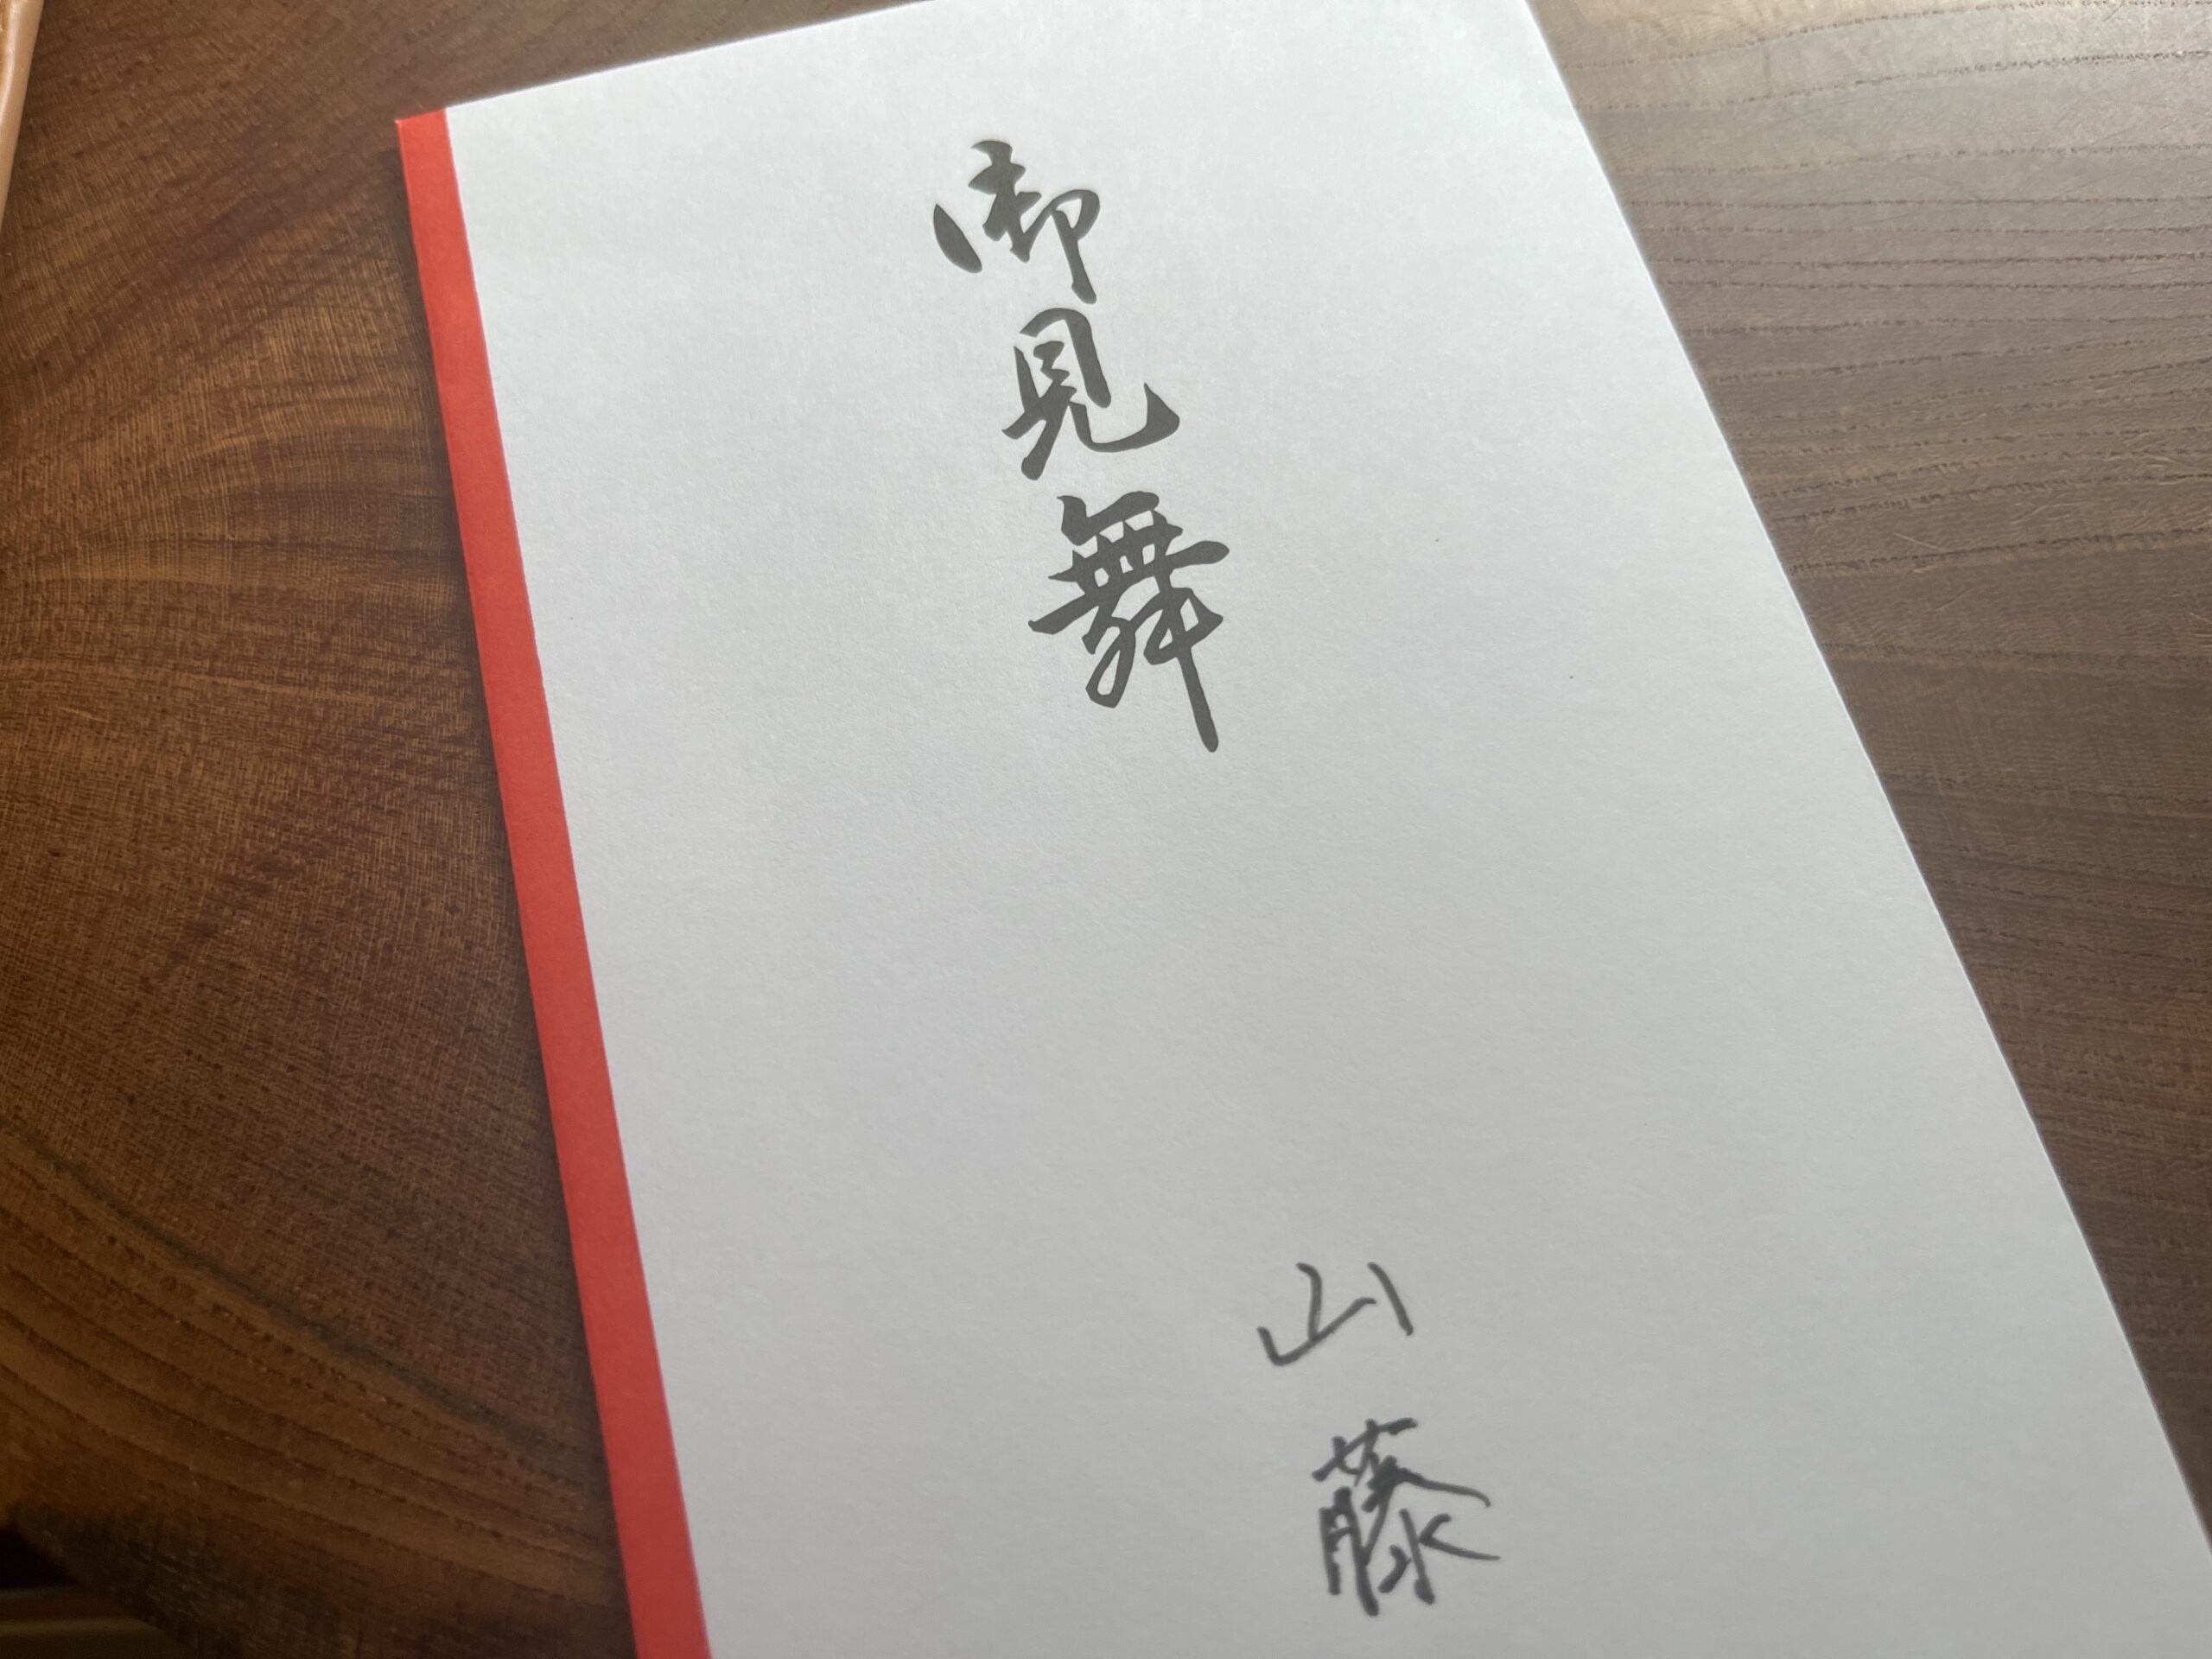 御見舞
山藤